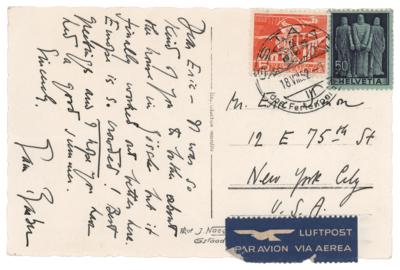 Dear Eric - It was so
kind of you to
the house in but it
finally worked out better here.
Europe is so crowded! Best
greetings and I hope you have
had a good summer.
Sincerely,
GSTAAD
18.VIII.5
HELVETIA
50
HELVETIA
Mr. Eric
12 E 75th St
New York City
U.S.A.
LUFTPOST
PAR AVION VIA AEREA
J. Naeg
Gstaad